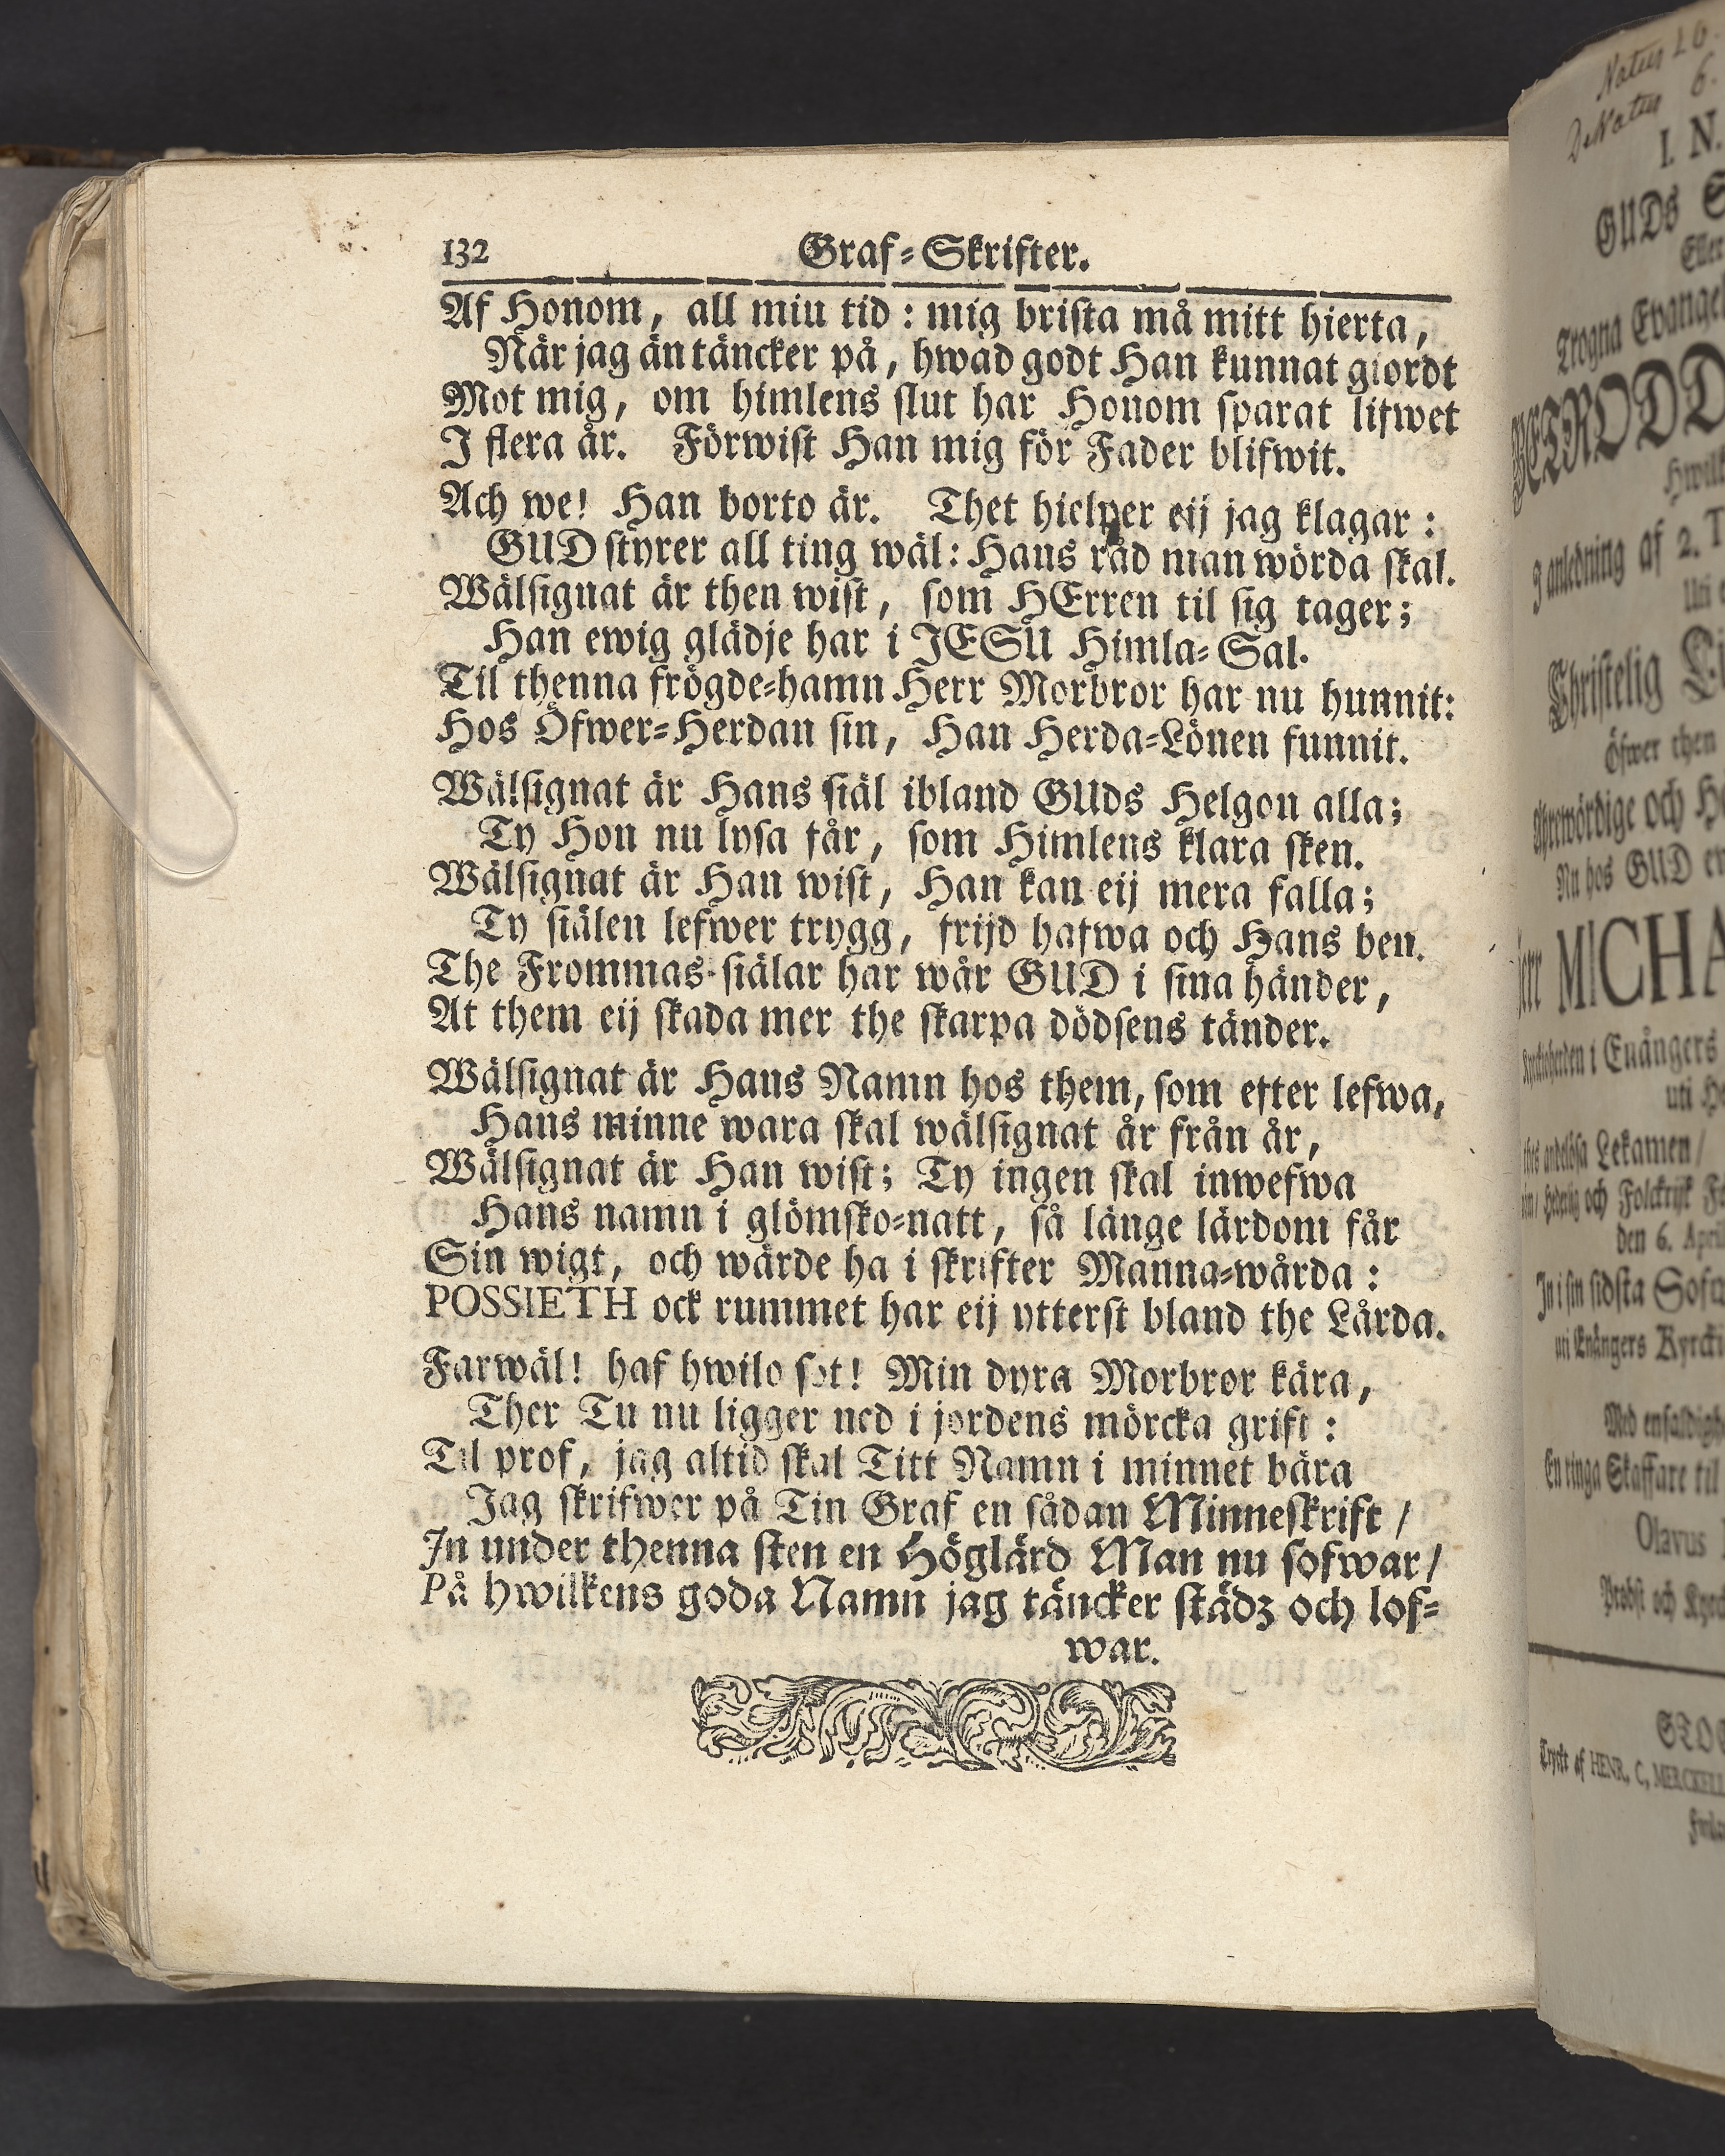 132 Graf-Skrifter.
Af Honom, all miu tid: mig brista må mitt hierta,
När jag än täncker på, hwad godt Han kunnat giordt
Mot mig, om himlens slut har Honom sparat lifwet
I flera år. Förwist Han mig för Fader blifwit.
Ach we! Han borto är. Thet hielper eij jag klagar:
GUD styrer all ting wäl: Hans råd man wörda skal.
Wälsignat är then wist, som HErren til sig tager;
Han ewig glädje har i JESU Himla-Sal.
Til thenna frögde-hamn Herr Morbror har nu hunnit:
Hos Öfwer-Herdan sin, Han Herda-Lönen funnit.
Wälsignat är Hans siäl ibland GUds Helgon alla;
Ty Hon nu lysa får, som Himlens klara sken.
Wälsignat är Han wist, Han kan eij mera falla;
Ty siälen lefwer trygg, frijd hafwa och Hans ben.
The Frommas siälar har wår GUD i sina händer,
At them eij skada mer the skarpa dödsens tänder.
Wälsignat är Hans Namn hos them, som efter lefwa,
Hans minne wara skal wälsignat år från år,
Wälsignat är Han wist; Ty ingen skal inwefwa
Hans namn i glömsko-natt, så länge lärdom får
Sin wigt, och wärde ha i skrifter Manna-wårda:
POSSIETH ock rummet har eij ytterst bland the Lårda.
Farwäl! haf hwilo söt! Min dyra Morbror kära,
Ther Tu nu ligger ned i jordens mörcka grift:
Til prof, jag altid skal Titt Namn i minnet bära
Jag skrifwer på Tin Graf en sådan Minneskrift /
In under thenna sten en Höglärd Man nu sofwar /
På hwilkens goda Namn jag täncker städz och lof-
war.
I. N.
GUDs
Eller
Trogna
anledning af 2.
Christelig
Öfwer then
och
Nu hos GUD
MICHA
i Enångers
uti
Lekamen /
och Folckrijk
den 6. April
sidsta
Enångers
Skaffare til
Olavus
Probst och
Tryckt af HENR. C. MERCKELL